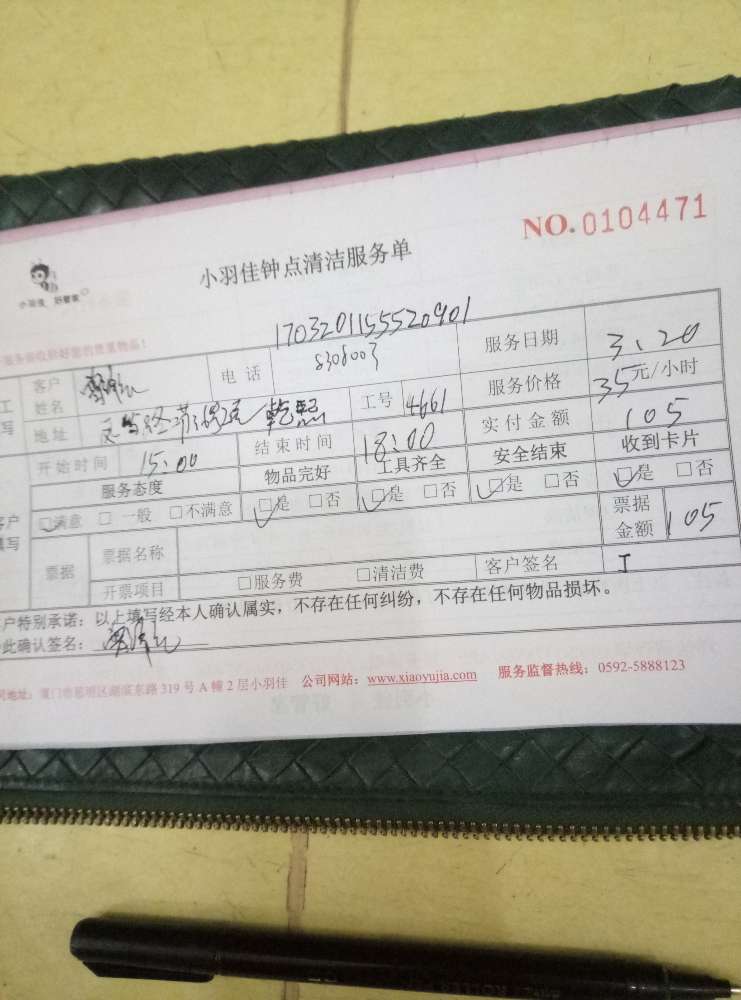 NO.0104471
小羽佳 好管家
小羽佳钟点清洁服务单
17032011555520901
客户姓名 电话 8308003 服务日期 3:20
地址 工号 4661 服务价格 35元/小时
开始时间 15:00 结束时间 18:00 实付金额 105
服务态度 物品完好 工具齐全 安全结束 收到卡片
□满意 □一般 □不满意 □是 □否 □是 □否 □是 □否 □是 □否
票据 票据名称 票据金额 105
开票项目 □服务费 □清洁费 客户签名
户特别承诺:以上填写经本人确认属实,不存在任何纠纷,不存在任何物品损坏。
此确认签名:
司地址:厦门市思明区湖滨东路319号A幢2层小羽佳 公司网站:www.xiaoyujia.com 服务监督热线:0592-5888123